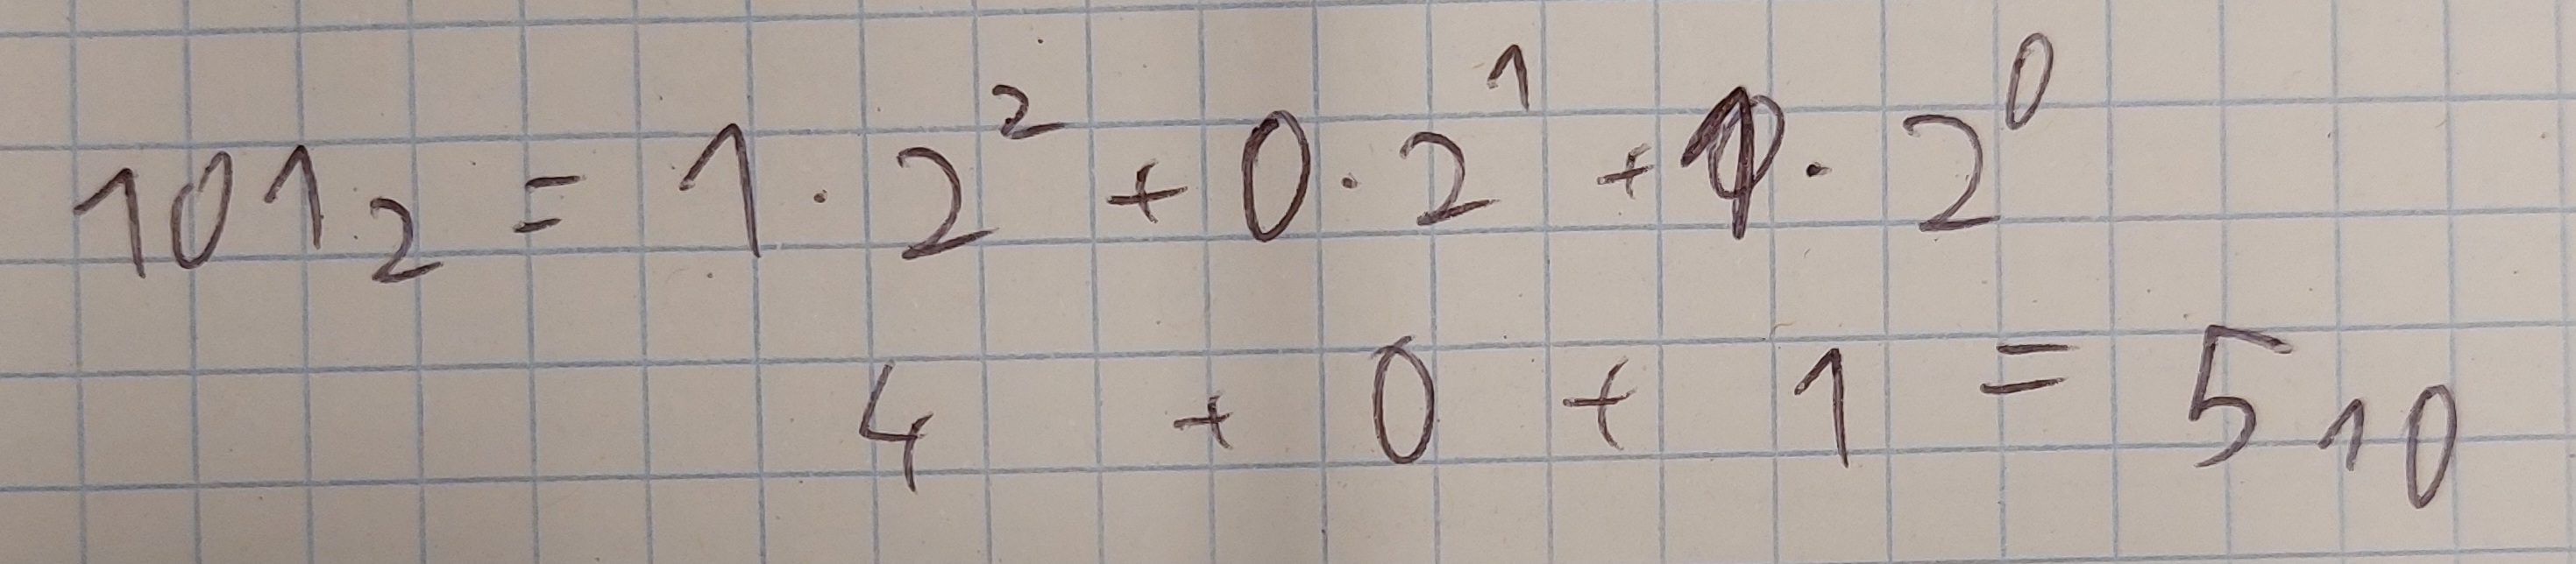 101₂ = 1 · 2² + 0 · 2¹ + 1 · 2⁰
4 + 0 + 1 = 5₁₀